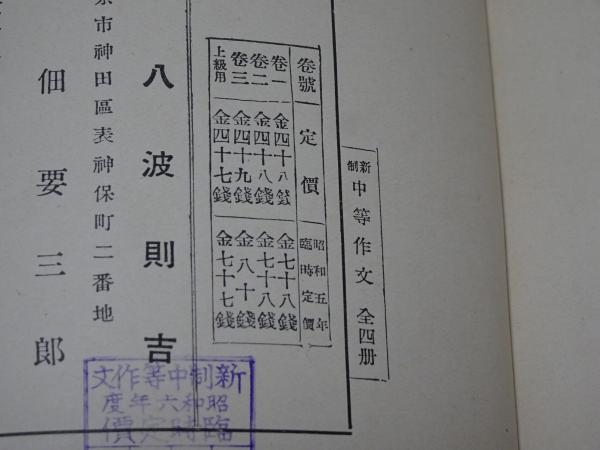 新制 中等作文 全四册
卷號 定價 昭和五年臨時定價
卷一 金四十八錢 金七十八錢
卷二 金四十八錢 金七十八錢
卷三 金四十九錢 金八十錢
上級用 金四十七錢 金七十七錢
八波則吉
京市神田區表神保町二番地
佃要三郎
新制中等作文
昭和六年度
臨時定價